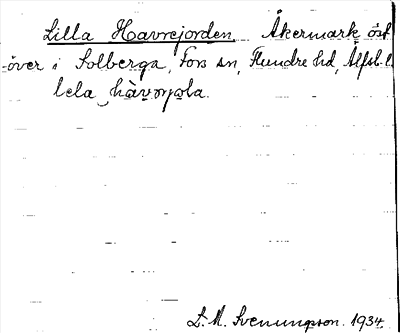 Lilla Havrejorden. Åkermark öst
över i Solberga, Fors sn, Flundre hd, Älfsb. l
lela
L. M. Svenungson. 1934.